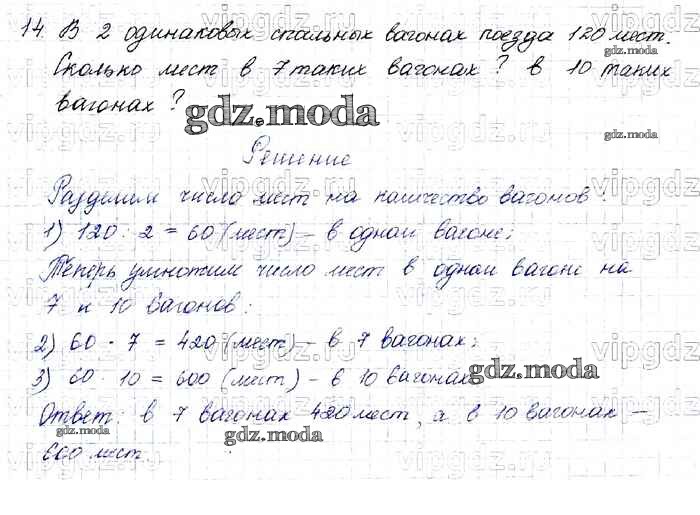 14. В 2 одинаковых спальных вагонах поезда 120 мест.
Сколько мест в 7 таких вагонах? в 10 таких
вагонах?
Решение
Разделим число мест на количество вагонов:
1) 120 : 2 = 60 (мест) – в одном вагоне;
Теперь умножим число мест в одном вагоне на
7 и 10 вагонов:
2) 60 · 7 = 420 (мест) – в 7 вагонах;
3) 60 · 10 = 600 (мест) – в 10 вагонах
Ответ: в 7 вагонах 420 мест, а в 10 вагонах –
600 мест
gdz.moda
gdz.moda
gdz.moda
gdz.moda
gdz.moda
gdz.moda
vipgdz.ru